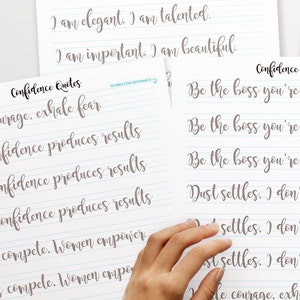 I am elegant. I am talented.
I am important. I am beautiful.
Confidence Quotes
courage, exhale fear.
confidence produces results
confidence produces results
confidence produces results
compete. Women empower.
compete. Women empower
Confidence
Be the boss you're
Be the boss you're
Be the boss you're
Dust settles, I don'
Dust settles, I don'
settles, I don'
courage, exhale